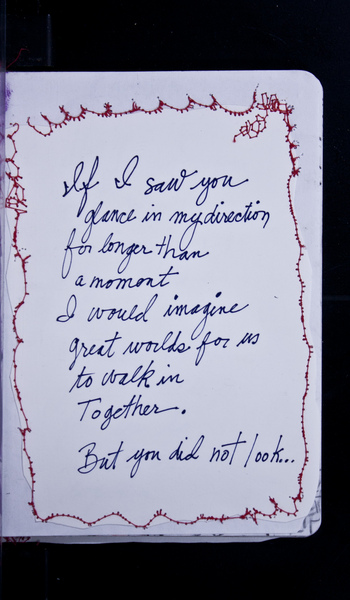 If I saw you
glance in my direction
for longer than
a momant
I would imagine
great worlds for us
to walk in
Together.
But you did not look...